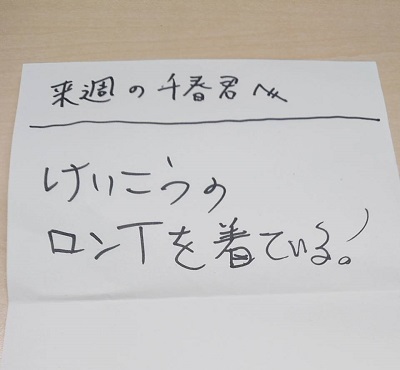 来週の千春君へ
けいこうの
ロンTを着ている!